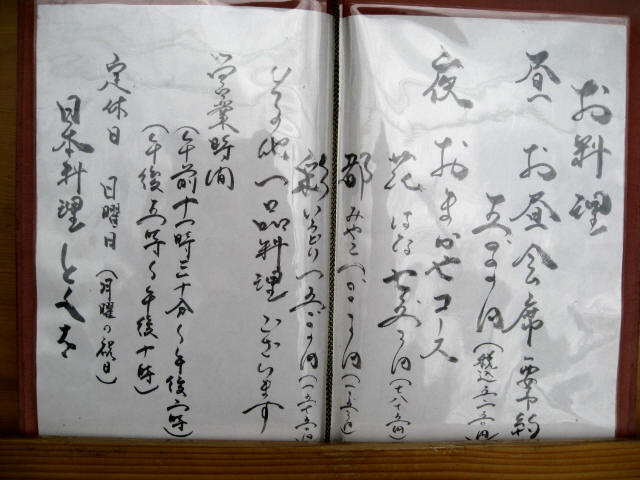 お料理
昼 お昼会席 要予約
五、〇〇〇円(税込五二五〇円)
夜 おまかせコース
花 はな 七、五〇〇円(七八七五円)
都 みやこ 一〇、〇〇〇円
彩 いろどり 一五、〇〇〇円(一五七五〇円)
その他一品料理ございます
営業時間
(午前十一時三十分〜午後二時)
(午後五時〜午後十時)
定休日 日曜日(月曜の祝日)
日本料理 とくを